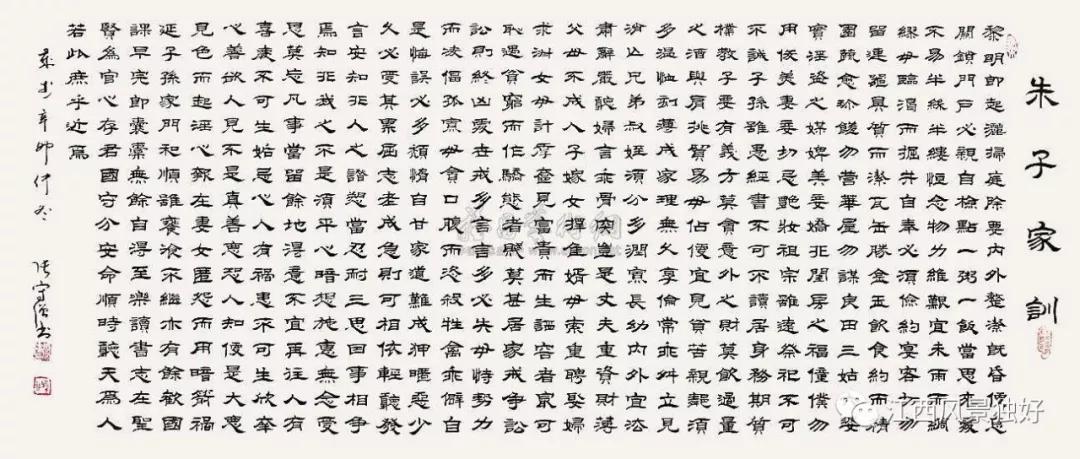 朱子家訓
黎明即起灑掃庭除要內外整潔既昏便息
關鎖門戶必親自檢點一粥一飯當思來處
不易半絲半縷恆念物力維艱宜未雨而綢
繆毋臨渴而掘井自奉必須儉約宴客切勿
留連器具質而潔瓦缶勝金玉飲食約而精
園蔬愈珍饈勿營華屋勿謀良田三姑六婆
實淫盜之媒婢美妾嬌非閨房之福僮僕勿
用俊美妻妾切忌艷妝祖宗雖遠祭祀不可
不誠子孫雖愚經書不可不讀居身務期質
樸教子要有義方莫貪意外之財莫飲過量
之酒與肩挑貿易毋佔便宜見貧苦親鄰須
多溫恤刻薄成家理無久享倫常乖舛立見
消亡兄弟叔姪須分多潤寡長幼內外宜法
肅辭嚴聽婦言乖骨肉豈是丈夫重資財薄
父母不成人子嫁女擇佳婿毋索重聘娶婦
求淑女毋計厚奩見富貴而生諂容者最可
恥遇貧窮而作驕態者賤莫甚居家戒爭訟
訟則終凶處世戒多言言多必失毋恃勢力
而凌逼孤寡毋貪口腹而恣殺牲禽乖僻自
是悔誤必多頹惰自甘家道難成狎暱惡少
久必受其累屈志老成急則可相依輕聽發
言安知非人之譖愬當忍耐三思因事相爭
焉知非我之不是須平心暗想施惠無念受
恩莫忘凡事當留餘地得意不宜再往人有
喜慶不可生妒忌心人有禍患不可生欣幸
心善欲人見不是真善惡恐人知便是大惡
見色而起淫心報在妻女匿怨而用暗箭禍
延子孫家門和順雖饔飧不繼亦有餘歡國
課早完即囊橐無餘自得至樂讀書志在聖
賢為官心存君國守分安命順時聽天為人
若此庶乎近焉
辛卯仲冬
江西风景独好